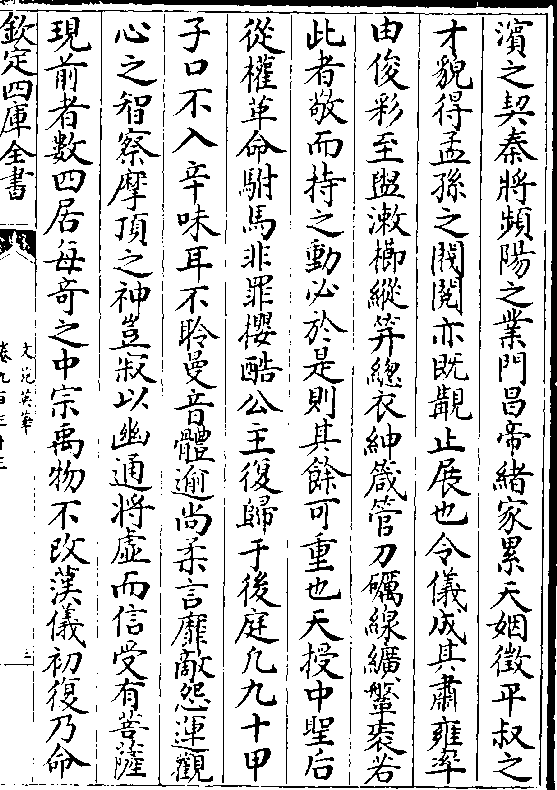 濱之契秦將頻陽之業門昌帝緒家累天姻徵平叔之
才貌得孟孫之閥閱亦既覯止展也令儀成其肅雍率
由俊彩至盥漱櫛縰笄緫衣紳箴管刀礪線纊鞶袠若
此者敬而持之動必於是則其餘可重也天授中聖后
從權革命駙馬非罪攖酷公主復歸于後庭凡九十甲
子口不入辛味耳不聆曼音體逾尚柔言靡敵怨運觀
心之智察摩頂之神豈寂以幽通將虛而信受有菩薩
現前者數四居每奇之中宗禹物不改漢儀初復乃命
欽定四庫全書
文苑英華
卷九百三十三
三